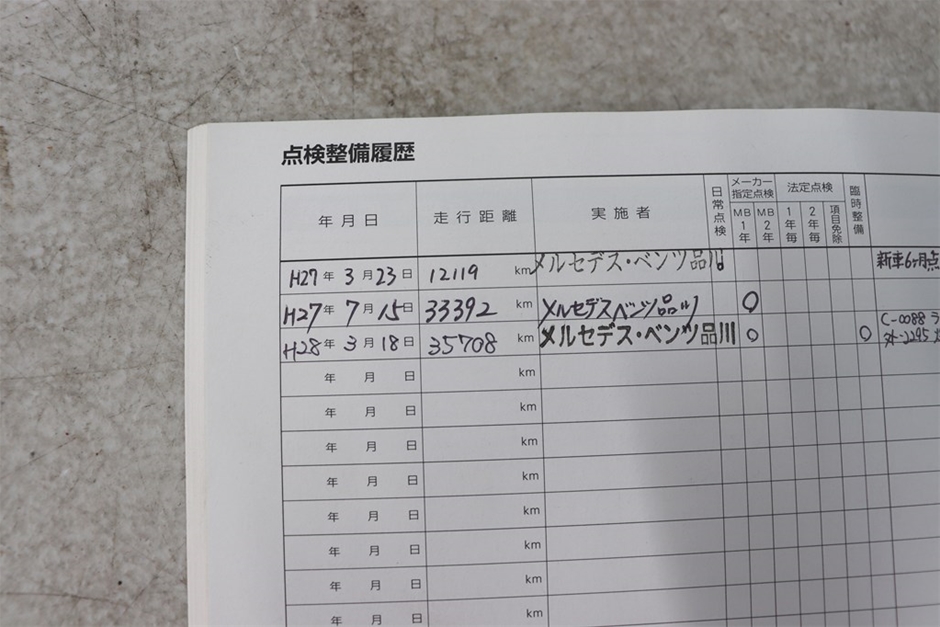 点検整備履歴
年月日 走行距離 実施者 日常点検 メーカー指定点検 MB1年 MB2年 法定点検 1年毎 2年毎 項目免除 臨時整備
H27年 3月23日 12119 km メルセデス・ベンツ品川 新車6ヶ月点
H27年 7月15日 33392 km メルセデスベンツ品川 ○
H28年 3月18日 35708 km メルセデス・ベンツ品川 ○ ○ C-0088 ラ
外-2295
年 月 日 km
年 月 日 km
年 月 日 km
年 月 日 km
年 月 日 km
年 月 日 km
年 月 日 km
年 月 日 km